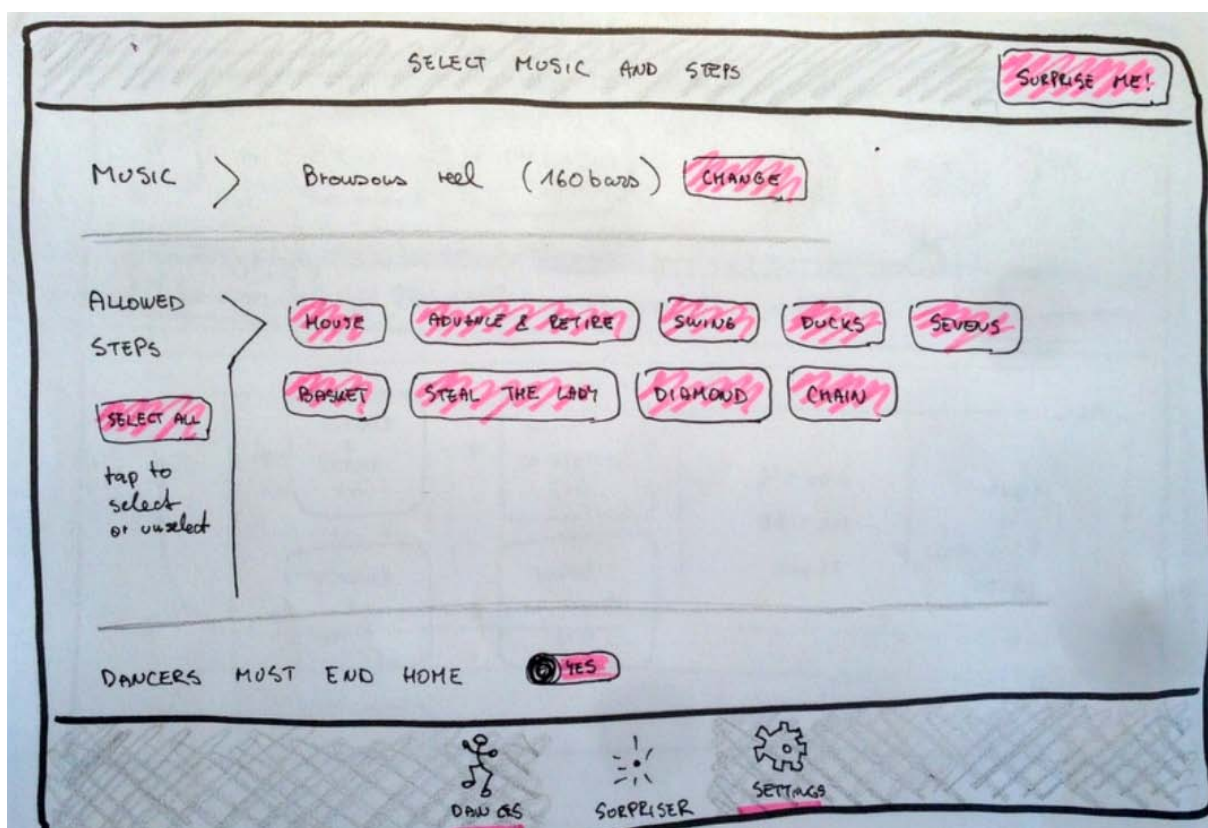 SELECT MUSIC AND STEPS
SURPRISE ME!
MUSIC
Browsous reel (160 bars)
CHANGE
ALLOWED
STEPS
SELECT ALL
tap to
select
or unselect
HOUSE
ADVANCE & RETIRE
SWING
DUCKS
SEVENS
BASKET
STEAL THE LADY
DIAMOND
CHAIN
DANCERS MUST END HOME
YES
DANCES
SURPRISER
SETTINGS